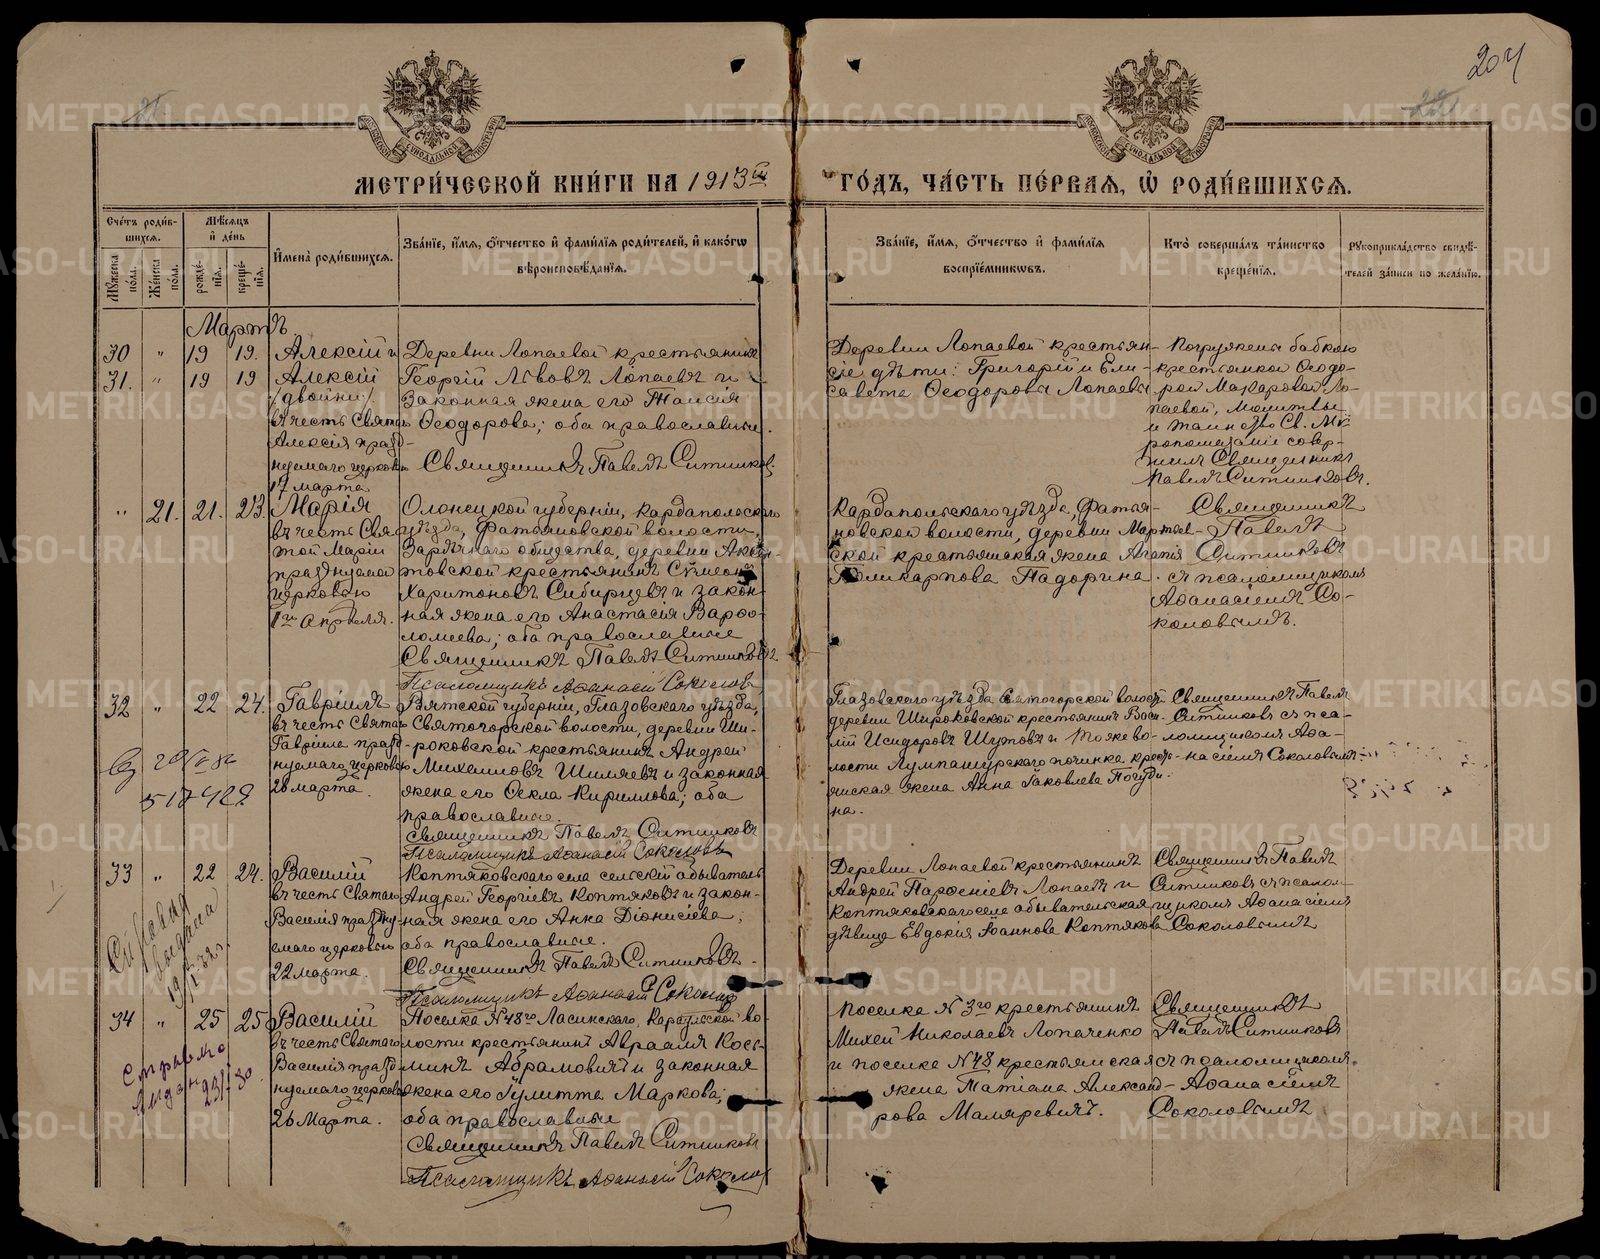 204
МЕТРИ́ЧЕСКОЙ КНИ́ГИ НА 1913й
ГО́ДЪ, ЧА́СТЬ ПЕ́РВАЯ, Ѡ҆ РОДИ́ВШИХСЯ.
Сче́тъ роди́в-
шихся.
Мꙋ́жеска по́ла.
Же́нска по́ла.
Мѣ́сяцъ
и҆ де́нь
рожде́-
нїя.
креще́-
нїя.
И҆мена̀ роди́вшихся.
Зва́нїе, и҆́мя, ѻ҆́тчество и҆ фами́лїя роди́телей, и҆ како́гѡ
вѣроисповѣ́данїя.
Зва́нїе, и҆́мя, ѻ҆́тчество и҆ фами́лїя
воспрїе́мникѡвъ.
Кто̀ соверша́лъ та́инство
креще́нїя.
Рꙋкоприкла́дство свидѣ́-
телей за́писи по жела́нїю.
Мартъ.
30 " 19 19.
31. " 19 19
Алексій и
Алексій
(двойни).
въ честь Святаго
Алексія празд-
нуемаго церковью
17 марта
Деревни Лопаевой крестьянинъ
Георгій Львовъ Лопаевъ и
законная жена его Таисія
Ѳеодорова; оба православные.
Священникъ Павелъ Ситниковъ.
Деревни Лопаевой крестьян-
скіе дѣти: Григорій и Ели-
савета Ѳеодоровы Лопаевы
Погружены бабкою
крестьянкою Ѳеодо-
рой Макаровой Ло-
паевой, Молитвы
и таинство Св. Мѵ-
ропомазанія совер-
шилъ Священникъ
Павелъ Ситниковъ.
" 21. 21. 23.
Марія
въ честь Свя-
той Маріи
празднуемой
церковью
1го Апрѣля.
Олонецкой губерніи, Кардапольскаго
уѣзда, Фатьяновской волости,
Зарѣчнаго общества, деревни Аксен-
товской крестьянинъ Сѵмеонъ
Харитоновъ Сибирцевъ и закон-
ная жена его Анастасія Варѳо-
ломеева; оба православные
Священникъ Павелъ Ситниковъ
Псаломщикъ Аѳанасій Соколовъ
Кардапольскаго уѣзда, Фатья-
новской волости, деревни Мартыв-
ской крестьянская жена Агатія
Поликарпова Падорина.
Священникъ
Павелъ
Ситниковъ
съ псаломщикомъ
Аѳанасіемъ Со-
коловымъ.
32 " 22 24.
Гавріилъ
въ честь Святаго
Гавріила празд-
нуемаго церковью
26 марта.
Вятской губерніи, Глазовскаго уѣзда,
Святогорской волости, деревни Ши-
роковской крестьянинъ Андрей
Михеиловъ Шиляевъ и законная
жена его Ѳекла Кириллова; оба
православные.
Священникъ Павелъ Ситниковъ
Псаломщикъ Аѳанасій Соколовъ
Глазовскаго уѣзда Святогорской волости
деревни Широковской крестьянинъ Васи-
лій Исидоровъ Шутовъ и тоже во-
лости Лумпашурскаго починка кресть-
янская жена Анна Іаковлева Погуди-
на.
Священникъ Павелъ
Ситниковъ съ пса-
ломщикомъ Аѳа-
насіемъ Соколовымъ
517429
33 " 22 24.
Василій
въ честь Святаго
Василія праздну-
емаго церковью
22 марта.
Коптяковскаго села сельскій обыватель
Андрей Георгіевъ Коптяковъ и закон-
ная жена его Анна Діонисіева,
оба православные.
Священникъ Павелъ Ситниковъ
Псаломщикъ Аѳанасій Соколовъ
Деревни Лопаевой крестьянинъ
Андрей Парѳеніевъ Лопаевъ и
Коптяковскаго села обывательская
дѣвица Евдокія Іоаннова Коптякова
Священникъ Павелъ
Ситниковъ съ псалом-
щикомъ Аѳанасіемъ
Соколовымъ
Справка
выдана
34 " 25 25
Василій
въ честь Святаго
Василія празд-
нуемаго церковью
26 Марта.
Поселка N 48го Ласинскаго, Караульской во-
лости крестьянинъ Авраамъ Кось-
минъ Абрамовичъ и законная
жена его Іулитта Маркова;
оба православные
Священникъ Павелъ Ситниковъ
Псаломщикъ Аѳанасій Соколовъ
Поселка N 3го крестьянинъ
Михей Николаевъ Лопаченко
и поселка N 48 крестьянская
жена Татіана Александ-
рова Маляревичъ.
Священникъ
Павелъ Ситниковъ
съ псаломщикомъ
Аѳанасіемъ
Соколовымъ